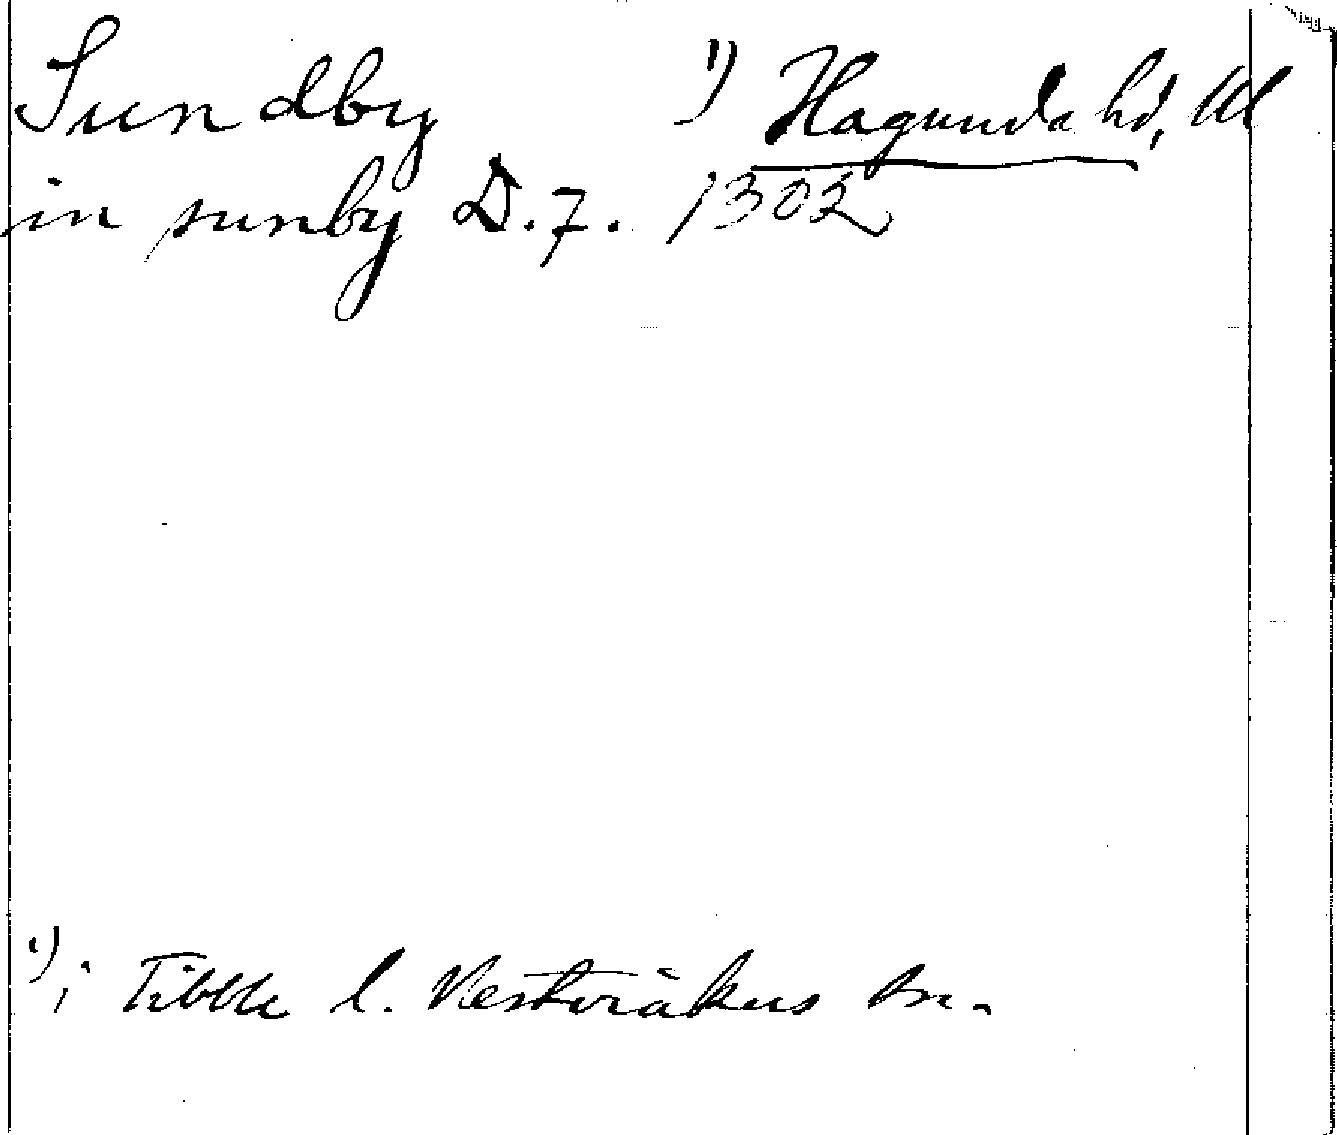 Sundby ¹) Hagunda hd, Upl
in sunby D.7. 1302
¹) i Tibble l. Vesteråkers sn.